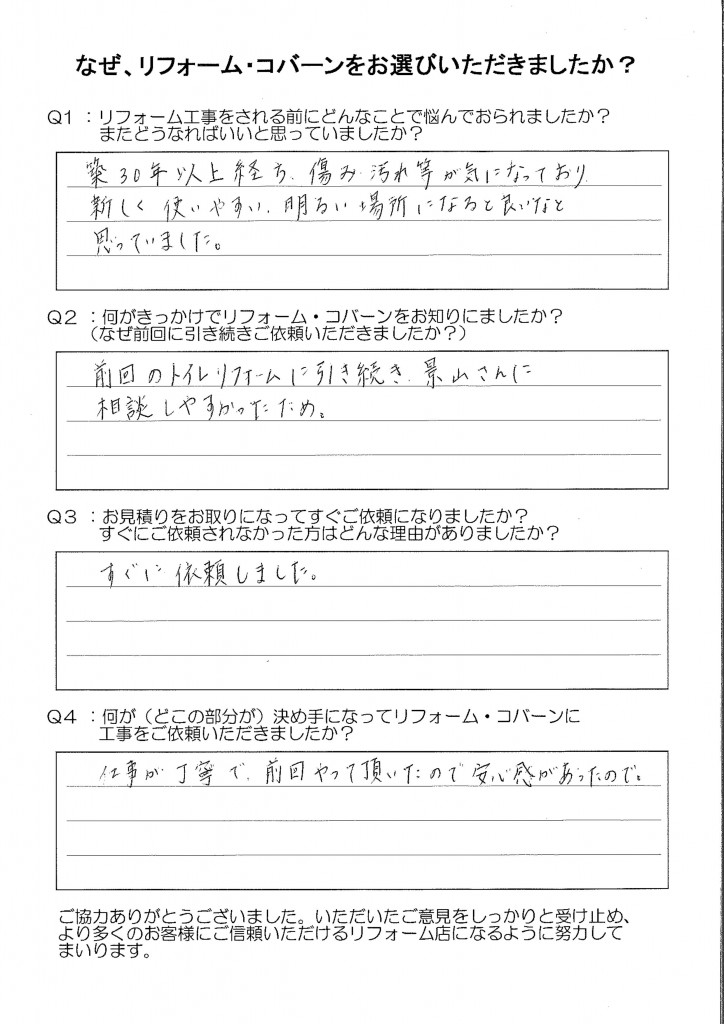 なぜ、リフォーム・コバーンをお選びいただきましたか？
Q1 ：リフォーム工事をされる前にどんなことで悩んでおられましたか？
またどうなればいいと思っていましたか？
築30年以上経ち、傷み、汚れ等が気になっており
新しく使いやすい、明るい場所になると良いなと
思っていました。
Q2 ：何がきっかけでリフォーム・コバーンをお知りにましたか？
（なぜ前回に引き続きご依頼いただきましたか？）
前回のトイレリフォームに引き続き、景山さんに
相談しやすかったため。
Q3 ：お見積りをお取りになってすぐご依頼になりましたか？
すぐにご依頼されなかった方はどんな理由がありましたか？
すぐに依頼しました。
Q4 ：何が（どこの部分が）決め手になってリフォーム・コバーンに
工事をご依頼いただきましたか？
仕事が丁寧で、前回やって頂いたので安心感があったので。
ご協力ありがとうございました。いただいたご意見をしっかりと受け止め、
より多くのお客様にご信頼いただけるリフォーム店になるように努力して
まいります。